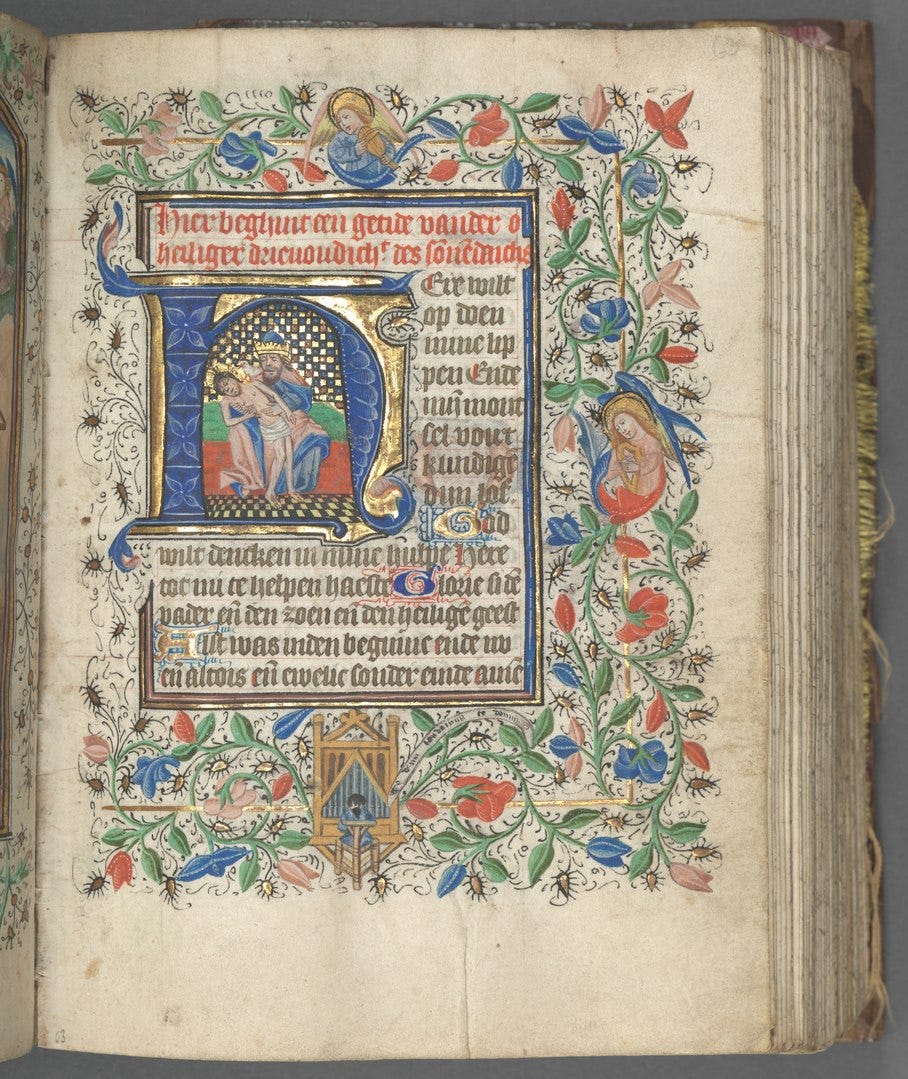 Hier beghint een getide vander
heiliger drievoudich^t des sonnendaichs
Ere wilt
op doen
mine lip
pen Ende
mijn mont
sel vout
kundigē
dijn lof
God
wilt dencken in mine hulpe Here
tot mi te helpen haeste Glorie si dē
vader eñ den zoen eñ den heiligē geest
Alst was inden beginne ende nv
eñ altois eñ ewelic sonder einde amē
63